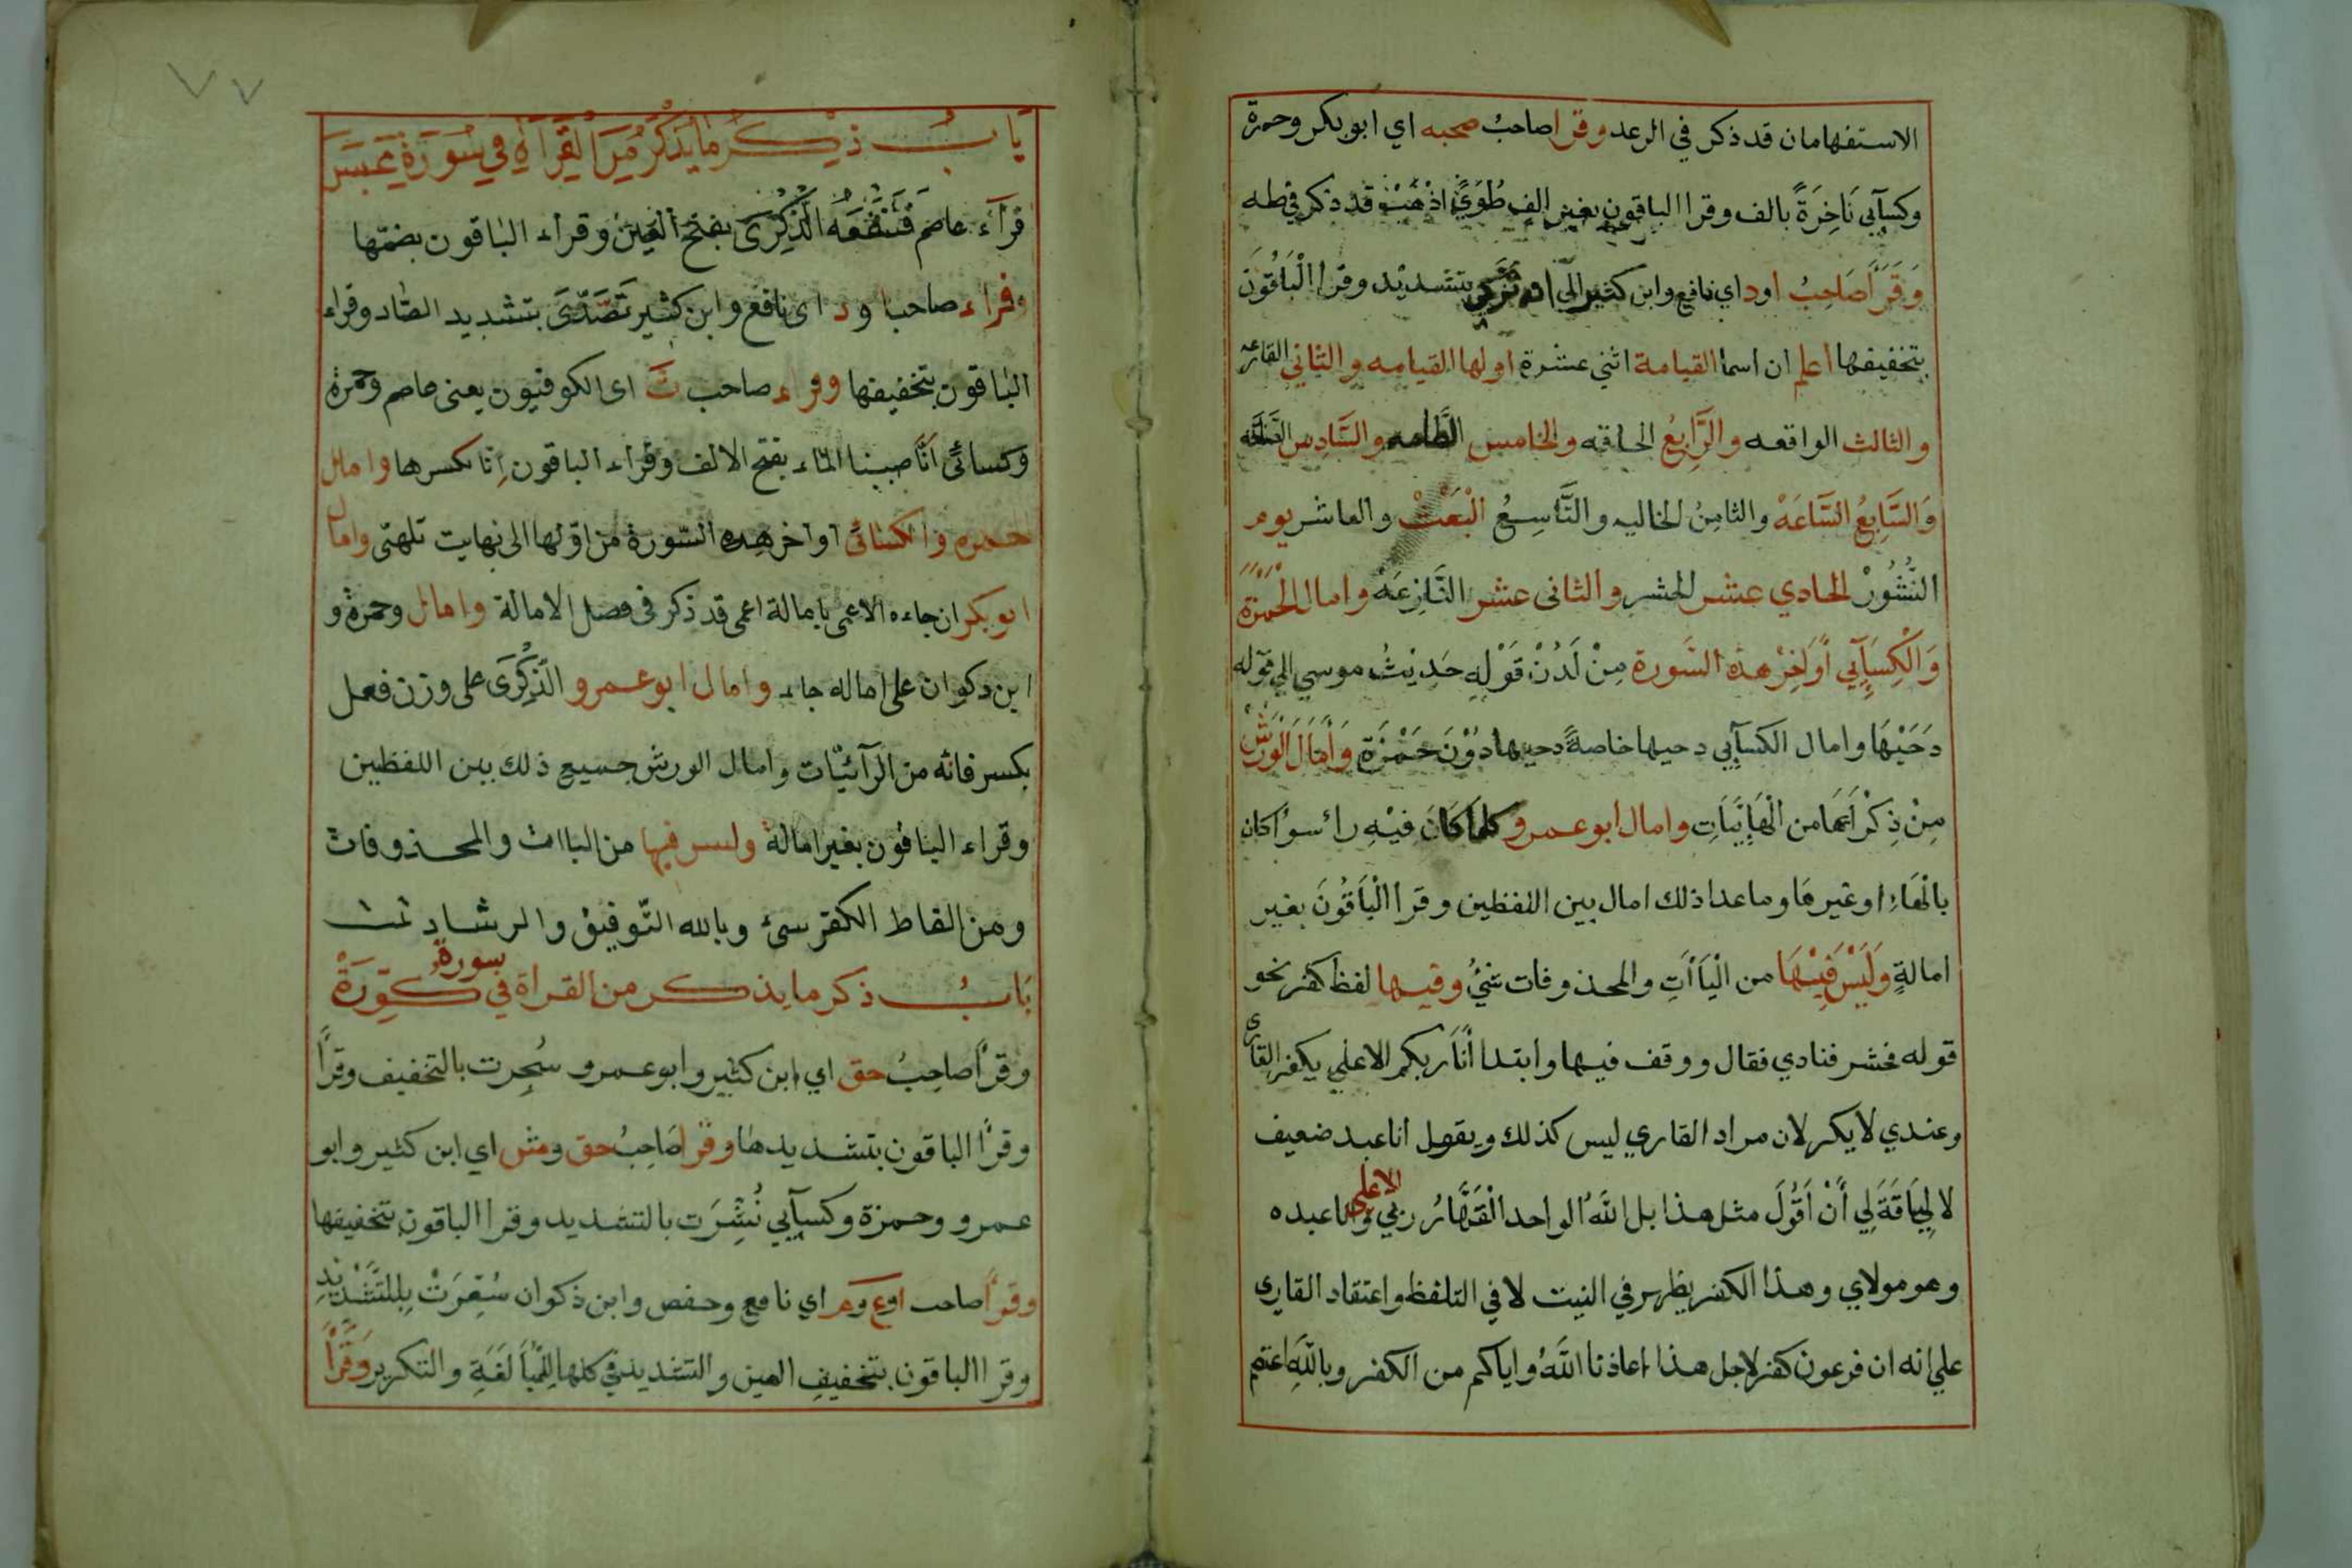 الاستفهامان قد ذكر في الرعد وقرا صاحبُ صحبه اي ابو بكر وحمزة
وكسآبي نَاخِرَةً بالف وقرا الباقون بغير الف طُوًي اذْهَبْ قد ذكر في طه
وَقَرَأَ صَاحِبُ اود اي نافع وابن كثير الي ان تزكي بتشديد وقرا الْبَاقُونَ
بتخفيفها اعلم ان اسما القيامة اثني عشرة اولها القيامه والثاني القارعه
والثالث الواقعه والرَّابِعُ الحاقه والخامس الطَّامه والسَّادِس
وَالسَّابِعُ السَّاعَهْ والثامِنُ الخاليه والتَّاسِعُ الْبَعَثْ والعاشر يوم
النُّشُورْ الحادي عشر الحشر والثاني عشر النَّازِعَه وامال الْحَمْزَة
وَالْكِسَآبِي أَوَاخِرْ هذه السَّورة مِنْ لَدُنْ قَوْلِهِ حَدِيثُ موسي الي قوله
دَحَيْهَا وامال الكسآبي دحيها خاصةً دحيها دُوْنَ حَمْزَةِ وَأَمَالَ الْوَرْشْ
مِنْ ذِكْرَهَا من الْهَائِيَّاتِ وامال ابو عمرو كلما كَانَ فِيْهِ رائ سواً كان
بالْهَاءِ او غير هَا وما عدا ذلك امال بين اللفظين وقرا الْبَاقُونَ بغير
امالةٍ وَلَيْسَ فِيْهَا من الْيَاَاتِ والمحذوفات شئُ وفيها لفظ كفر نحو
قوله فحشر فنادي فقال ووقف فيها وابتدا أَنَا ربكم الاعلي يكفر القاري
وعندي لا يكفر لان مراد القاري ليس كذلك ويقول انا عبد ضعيف
لا لِيَاقَةَ لِي أَنْ اَقُوْلَ مثل هذا بل اللهُ الواحد الْقَهَّارُ ربي الاعلي وانا عبده
وهو مولاي وهذا الكفر يظهر في النيت لا في التلفظ واعتقاد القاري
علي انه ان فرعون كفر لاجل هذا اعاذنا اللهُ واياكم من الكفر وباللهِ اعتصم
٧٧
بابُ ذكر ما يذكر من القراة في سورة عبس
قراء عاصم فَتَنْفَعَهُ الذِّكْرَى بفتح العين وقراء الباقون بضمّها
وقراء صاحب اود اى نافع وابن كثير تَصَّدَّى بتشديد الصّاد وقراء
الباقون بتخفيفها وقراء صاحب ث اى الكوفيون يعنى عاصم وحمزة
وكسائى اَنَّا صببنا الماء بفتح الالف وقراء الباقون اِنّا بكسرها وامال
حمزه والكسائى اواخر هذه السّورة من اوّلها الى نهايت تلهّى وامال
ابو بكر ان جاءه الاعمى بامالة اعمى قد ذكر فى فصل الامالة وامال وحمزة و
ابن ذكوان على اماله جاء وامال ابو عمرو الذِّكْرَى على وزن فعل
بكسر فانّه من الرآئيّات وامال الورش جميع ذلك بين اللفظين
وقراء الباقون بغير امالة وليس فيها من الياات والمحذوفات
ومن الفاظ الكفر سئ وبالله التّوفيق والرشاد تمت
بَابُ ذكر ما يذكر من القراة في سورة كوّرَةْ
وقرأ صاحِبُ حق اي ابن كثير وابو عمرو سُجِرت بالتخفيف وقرأ
وقرأ الباقون بتشديدها وقرا صَاحِبُ حق ومش اي ابن كثير وابو
عمرو وحمزة وكسآبي نُشِّرَت بالتشديد وقرا الباقون بتخفيفها
وقرأ صاحب اوع وم اي نافع وحفص وابن ذكوان سُعِّرَتْ بِالتَّشْدِيْدِ
وقرا الباقون بتخفيف العين والتشديد في كلها للْمُبَالَغَةِ والتكرير وَقَرَأَ